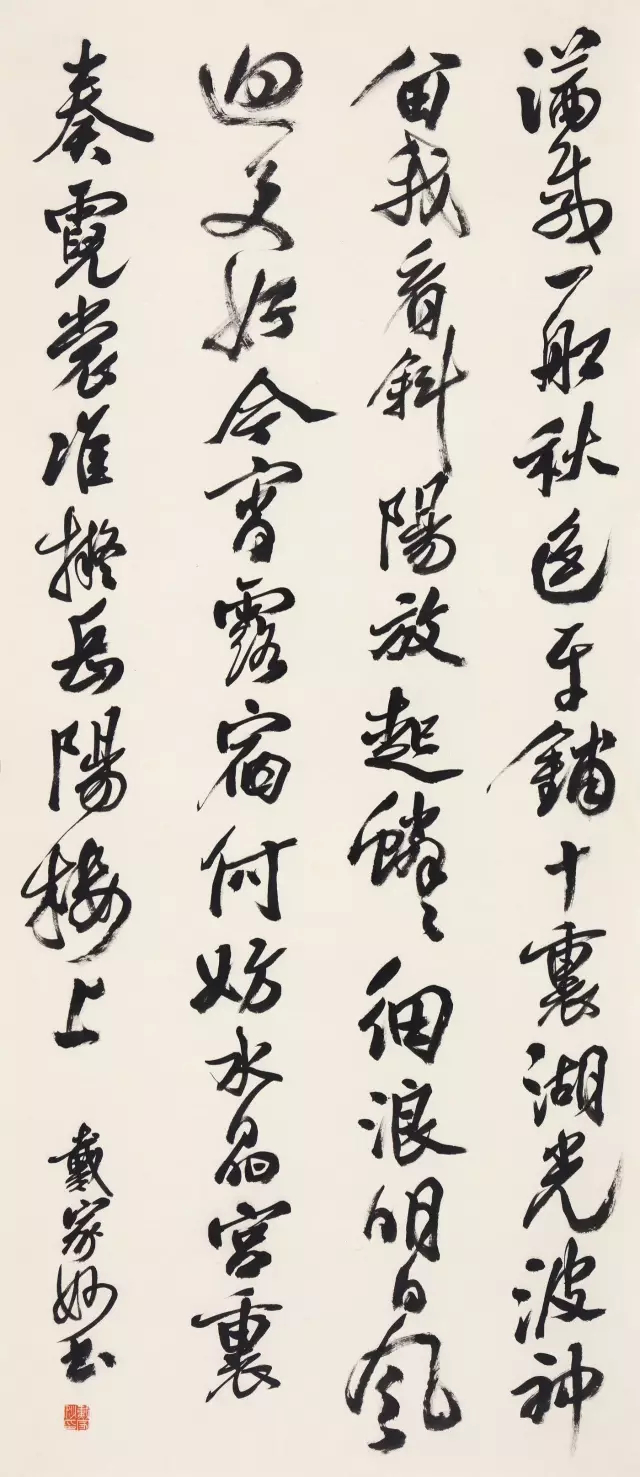 满载一船秋色平铺十裏湖光波神
留我看斜陽放起鳞々细浪明日風
迴更好今宵露宿何妨水晶宫裏
奏霓裳准擬岳陽樓上
戴家妙书